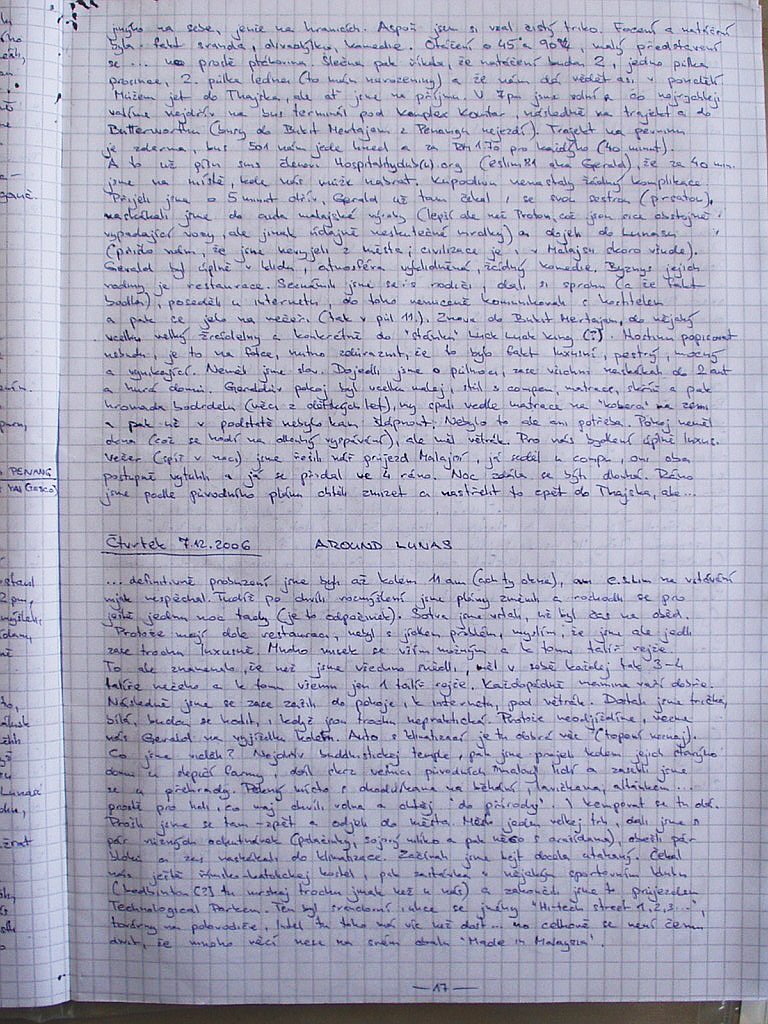 jiného na sebe, jenže na hranicích. Aspoň jsem si vzal čistý triko. Focení a natáčení
byla fakt sranda, divadýlko, komedie. Otáčení o 45 a 90°, malý představení
se ... no prostě ptákovina. Slečna pak říkala, že natáčení budou 2, jedno půlka
prosince, 2. půlka ledna (to mám narozeniny) a že nám dá vědět asi v pondělí
Můžem jet do Thajska, ale ať jsme na příjmu. V 7pm jsme volní a co nejrychlej
valíme nejdřív na bus terminál pod komplex Komtar, následně na trajekt a do
Butterworthu (busy do Bukit Mertajam z Penangu nejezdí). Trajekt na pevninu
je zdarma, bus 501 nám jede hned a za RM 1.70 pro každýho (40 minut).
A to už píšu sms členovi Hospitalityclub(u).org (eslim81 aka Gerald), že za 40 min.
jsme na místě, kde nás může nabrat. Kupodivu nenastaly žádný komplikace
Přijeli jsme o 5 minut dřív, Gerald už tam čekal, i se svou sestrou
naskákali jsme do auta malajské výroby (lepší ale než Proton, což jsou sice obstojně
vypadající vozy, ale jinak údajně neskutečné mrdky) a dojeli do Lunasu
(přišlo nám, že jsme nevyjeli z města; civilizace je v Malajsii skoro všude).
Gerald byl úplně v klidu, atmosféra vyklidněná, žádný komedie. Byznys jejich
rodiny je restaurace. Seznámili jsme se i s rodiči, dali si sprchu (a že fakt
bodla), poseděli u internetu, do toho nenuceně komunikovali s hostitelem
a pak se jelo na večeři (tak v půl 11.). Znova do Bukit Mertajam, do nějaký
vcelku velký žrádelny a konkrétně do "stánku" Luck Luck King (?). Hostinu popisovat
nebudu, je to na fotce, nutno zdůraznit, že to bylo fakt luxusní, pestrý, mocný
a vynikající. Neměl jsem slov. Dojedli jsme o půlnoci, zase všichni naskákali do 2 aut
a hurá domů. Geraldův pokoj byl vcelku malej, stůl s compem, matrace, skříň a pak
hromada bordelu (věci z dětských let), my spali vedle matrace na "koberci" na zemi
a pak už v podstatě nebylo kam šlápnout. Nebylo to ale ani potřeba. Pokoj neměl
okna (což se hodí na dlouhý vyspávání), ale měl větrák. Pro nás bydlení úplně luxus.
Večer (spíš v noci) jsme řešili náš průjezd Malajsií, já seděl u compu, oni oba
postupně vytuhli a já se přidal ve 4 ráno. Noc zdála se být dlouhá. Ráno
jsme podle původního plánu chtěli zmizet a nastřelit to zpět do Thajska, ale...
Čtvrtek 7.12.2006 AROUND LUNAS
... definitivně probuzení jsme byli až kolem 11 am (ach ty okna), ani e.slim na vstávání
nijak nespěchal. Tudíž po chvíli rozmýšlení jsme plány změnili a rozhodli se pro
ještě jednu noc tady (je to odpočinek). Sotva jsme vstali, už byl čas na oběd.
Protože mají dole restauraci, nebyl s jídlem problém, myslím, že jsme ale jedli
zase trochu luxusně. Mnoho misek se vším možným a k tomu talíř rejže.
To ale znamenalo, že než jsme všechno snědli, měl v sobě každej tak 3-4
talíře něčeho a k tomu všemu jen 1 talíř rejže. Každopádně mamina vaří dobře.
Následně jsme se zase zašili do pokoje, k internetu, pod větrák. Dostali jsme trička,
bílá, budou se hodit, i když jsou trochu nepraktická. Protože neodjíždíme, vezme
nás Gerald na vyjížďku kolem. Auto s klimatizací je tu dobrá věc (topení nemaj).
Co jsme viděli? Nejdřív buddhistickej temple, pak jsme projeli kolem jejich starýho
domu u slepičí farmy, dál skrz vesnici původních "malay" lidí a zasekli jsme
se u přehrady. Pěkný místo s chodníkama na běhání, lavičkama, altánkem...
prostě pro lidi, co maj chvíli volna a chtěj "do přírody". I kempovat se tu dá.
Prošli jsme se tam-zpět a odjeli do města. Měli jeden velkej trh, dali jsme si
pár různých ochutnávek (palačinky, sojový mlíko a pak něco s arašídama), obešli pár
bloků a zas naskákali do klimatizace. Začínali jsme bejt docela utahaný. Čekal
nás ještě římsko-katolickej kostel, pak zastávka v nějakým sportovním klubu
(badbinton (?) tu mrskaj trochu jinak než u nás) a zakončili jsme to průjezdem
Technological Parkem. Ten byl srandovní, ulice se jmény "Hi-tech street 1, 2, 3...",
továrny na polovodiče, Intel tu toho má víc než dost... no celkově se není čemu
divit, že mnoho věcí nese na svém obalu "Made in Malaysia".
— 17 —
PENANG